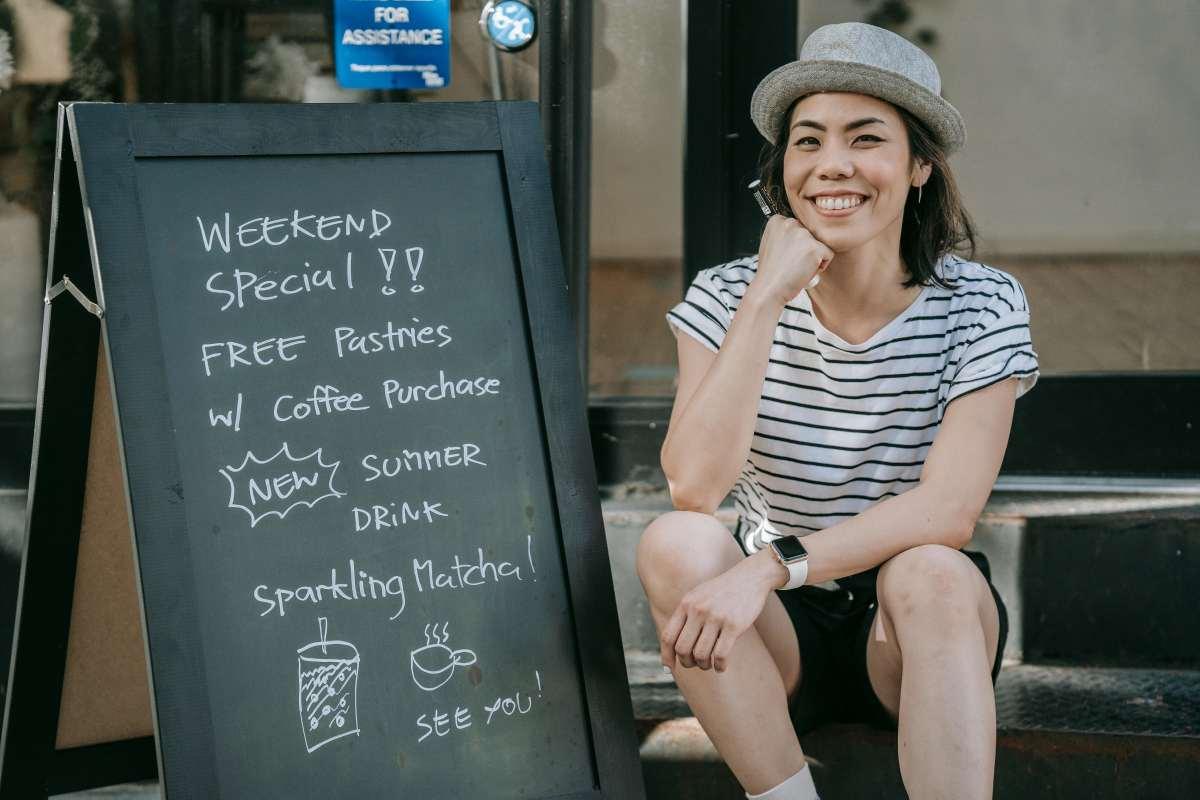 FOR
ASSISTANCE
WEEKEND
Special!!
FREE Pastries
w/ Coffee Purchase
NEW SUMMER
DRINK
Sparkling Matcha!
SEE YOU!